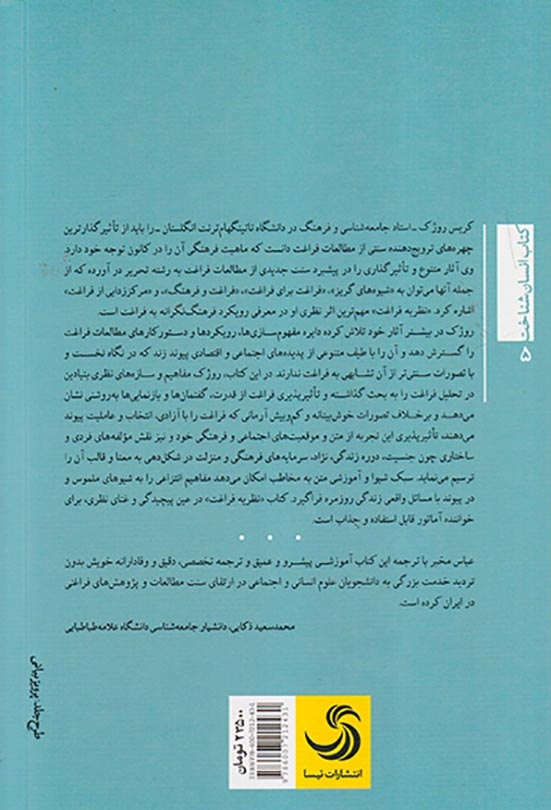 کتاب انسان‌شناخت ۵
کریس روژک ـ استاد جامعه‌شناسی و فرهنگ در دانشگاه ناتینگهام‌ترنت انگلستان ـ را باید از تأثیرگذارترین
چهره‌های ترویج‌دهنده سنتی از مطالعات فراغت دانست که ماهیت فرهنگی آن را در کانون توجه خود دارد.
وی آثار متنوع و تأثیرگذاری را در پیشبرد سنت جدیدی از مطالعات فراغت به رشته تحریر در آورده که از
جمله آنها می‌توان به «شیوه‌های گریز»، «فراغت برای فراغت»، «فراغت و فرهنگ»، و «مرکززدایی از فراغت»
اشاره کرد. «نظریه فراغت» مهم‌ترین اثر نظری او در معرفی رویکرد فرهنگ‌نگرانه به فراغت است.
روژک در بیشتر آثار خود تلاش کرده دایره مفهوم‌سازی‌ها، رویکردها و دستورکارهای مطالعات فراغت
را گسترش دهد و آن را با طیف متنوعی از پدیده‌های اجتماعی و اقتصادی پیوند زند که در نگاه نخست و
با تصورات سنتی‌تر از آن تشابهی به فراغت ندارند. در این کتاب، روژک مفاهیم و سازه‌های نظری بنیادین
در تحلیل فراغت را به بحث گذاشته و تأثیرپذیری فراغت از قدرت، گفتمان‌ها و بازنمایی‌ها به‌روشنی نشان
می‌دهد و برخلاف تصورات خوش‌بینانه و کم‌وبیش آرمانی که فراغت را با آزادی، انتخاب و عاملیت پیوند
می‌دهند، تأثیرپذیری این تجربه از متن و موقعیت‌های اجتماعی و فرهنگی خود و نیز نقش مؤلفه‌های فردی و
ساختاری چون جنسیت، دوره زندگی، نژاد، سرمایه‌های فرهنگی و منزلت در شکل‌دهی به معنا و قالب آن را
ترسیم می‌نماید. سبک شیوا و آموزشی متن به مخاطب امکان می‌دهد مفاهیم انتزاعی را به شیوه‌ای ملموس و
در پیوند با مسائل واقعی زندگی روزمره فراگیرد. کتاب «نظریه فراغت» در عین پیچیدگی و غنای نظری، برای
خواننده آماتور قابل استفاده و جذاب است.
عباس مخبر با ترجمه این کتاب آموزشی پیشرو و عمیق و ترجمه تخصصی، دقیق و وفادارانه خویش بدون
تردید خدمت بزرگی به دانشجویان علوم انسانی و اجتماعی در ارتقای سنت مطالعات و پژوهش‌های فراغتی
در ایران کرده است.
محمدسعید ذکایی، دانشیار جامعه‌شناسی دانشگاه علامه‌طباطبایی
طرح جلد: پرویز بیانی
۲۳۵۰۰ تومان
ISBN 978-600-7212-43-1
9 786007 212431
انتشارات تیسا